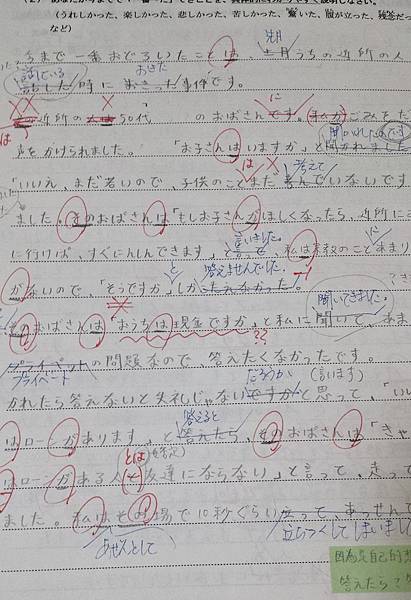 (うれしかった、楽しかった、悲しかった、苦しかった、驚いた、腹が立った、残念だっ
など)
先月
今まで一番おどろいたことは、十月うちの近所の人
話している おきた
話した時におこった事件です。
に
近所の 50代、 のおばさんです。私がごみをだ
は 聞かれしたのです
声をかけられました。「お子さんはいますか」と聞かれました
は 考えて
「いいえ、まだ若いので、子供のことまだ考んでいないです
ました。そのおばさんは「もしお子さんがほしくなったら、近所に
と言いました。 に
に行けば、すぐにんしんできます」と言って、私は実教のことあまり
と 答えませんでした。
がないので、「そうですか」しかこたえなかった。
聞いてきました。
そのおばさんは「おうちは現金ですか」と私に聞いて、あま
??
プライベートの問題なので、答えたくなかったです。
プライベート
だろうか (言います)
かれたら答えないと失礼じゃないですかと思って、「い
答えると
はローンがあります」と答えたら、そのおばさんは「きゃ
とは (否定)
はローンがある人と友達にならない」と言って、走って
ました。私はその場で10秒ぐらい立って、あっぜんと
あぜんとして
立ちつくしてしまいまし
因為是自己的
答えたら